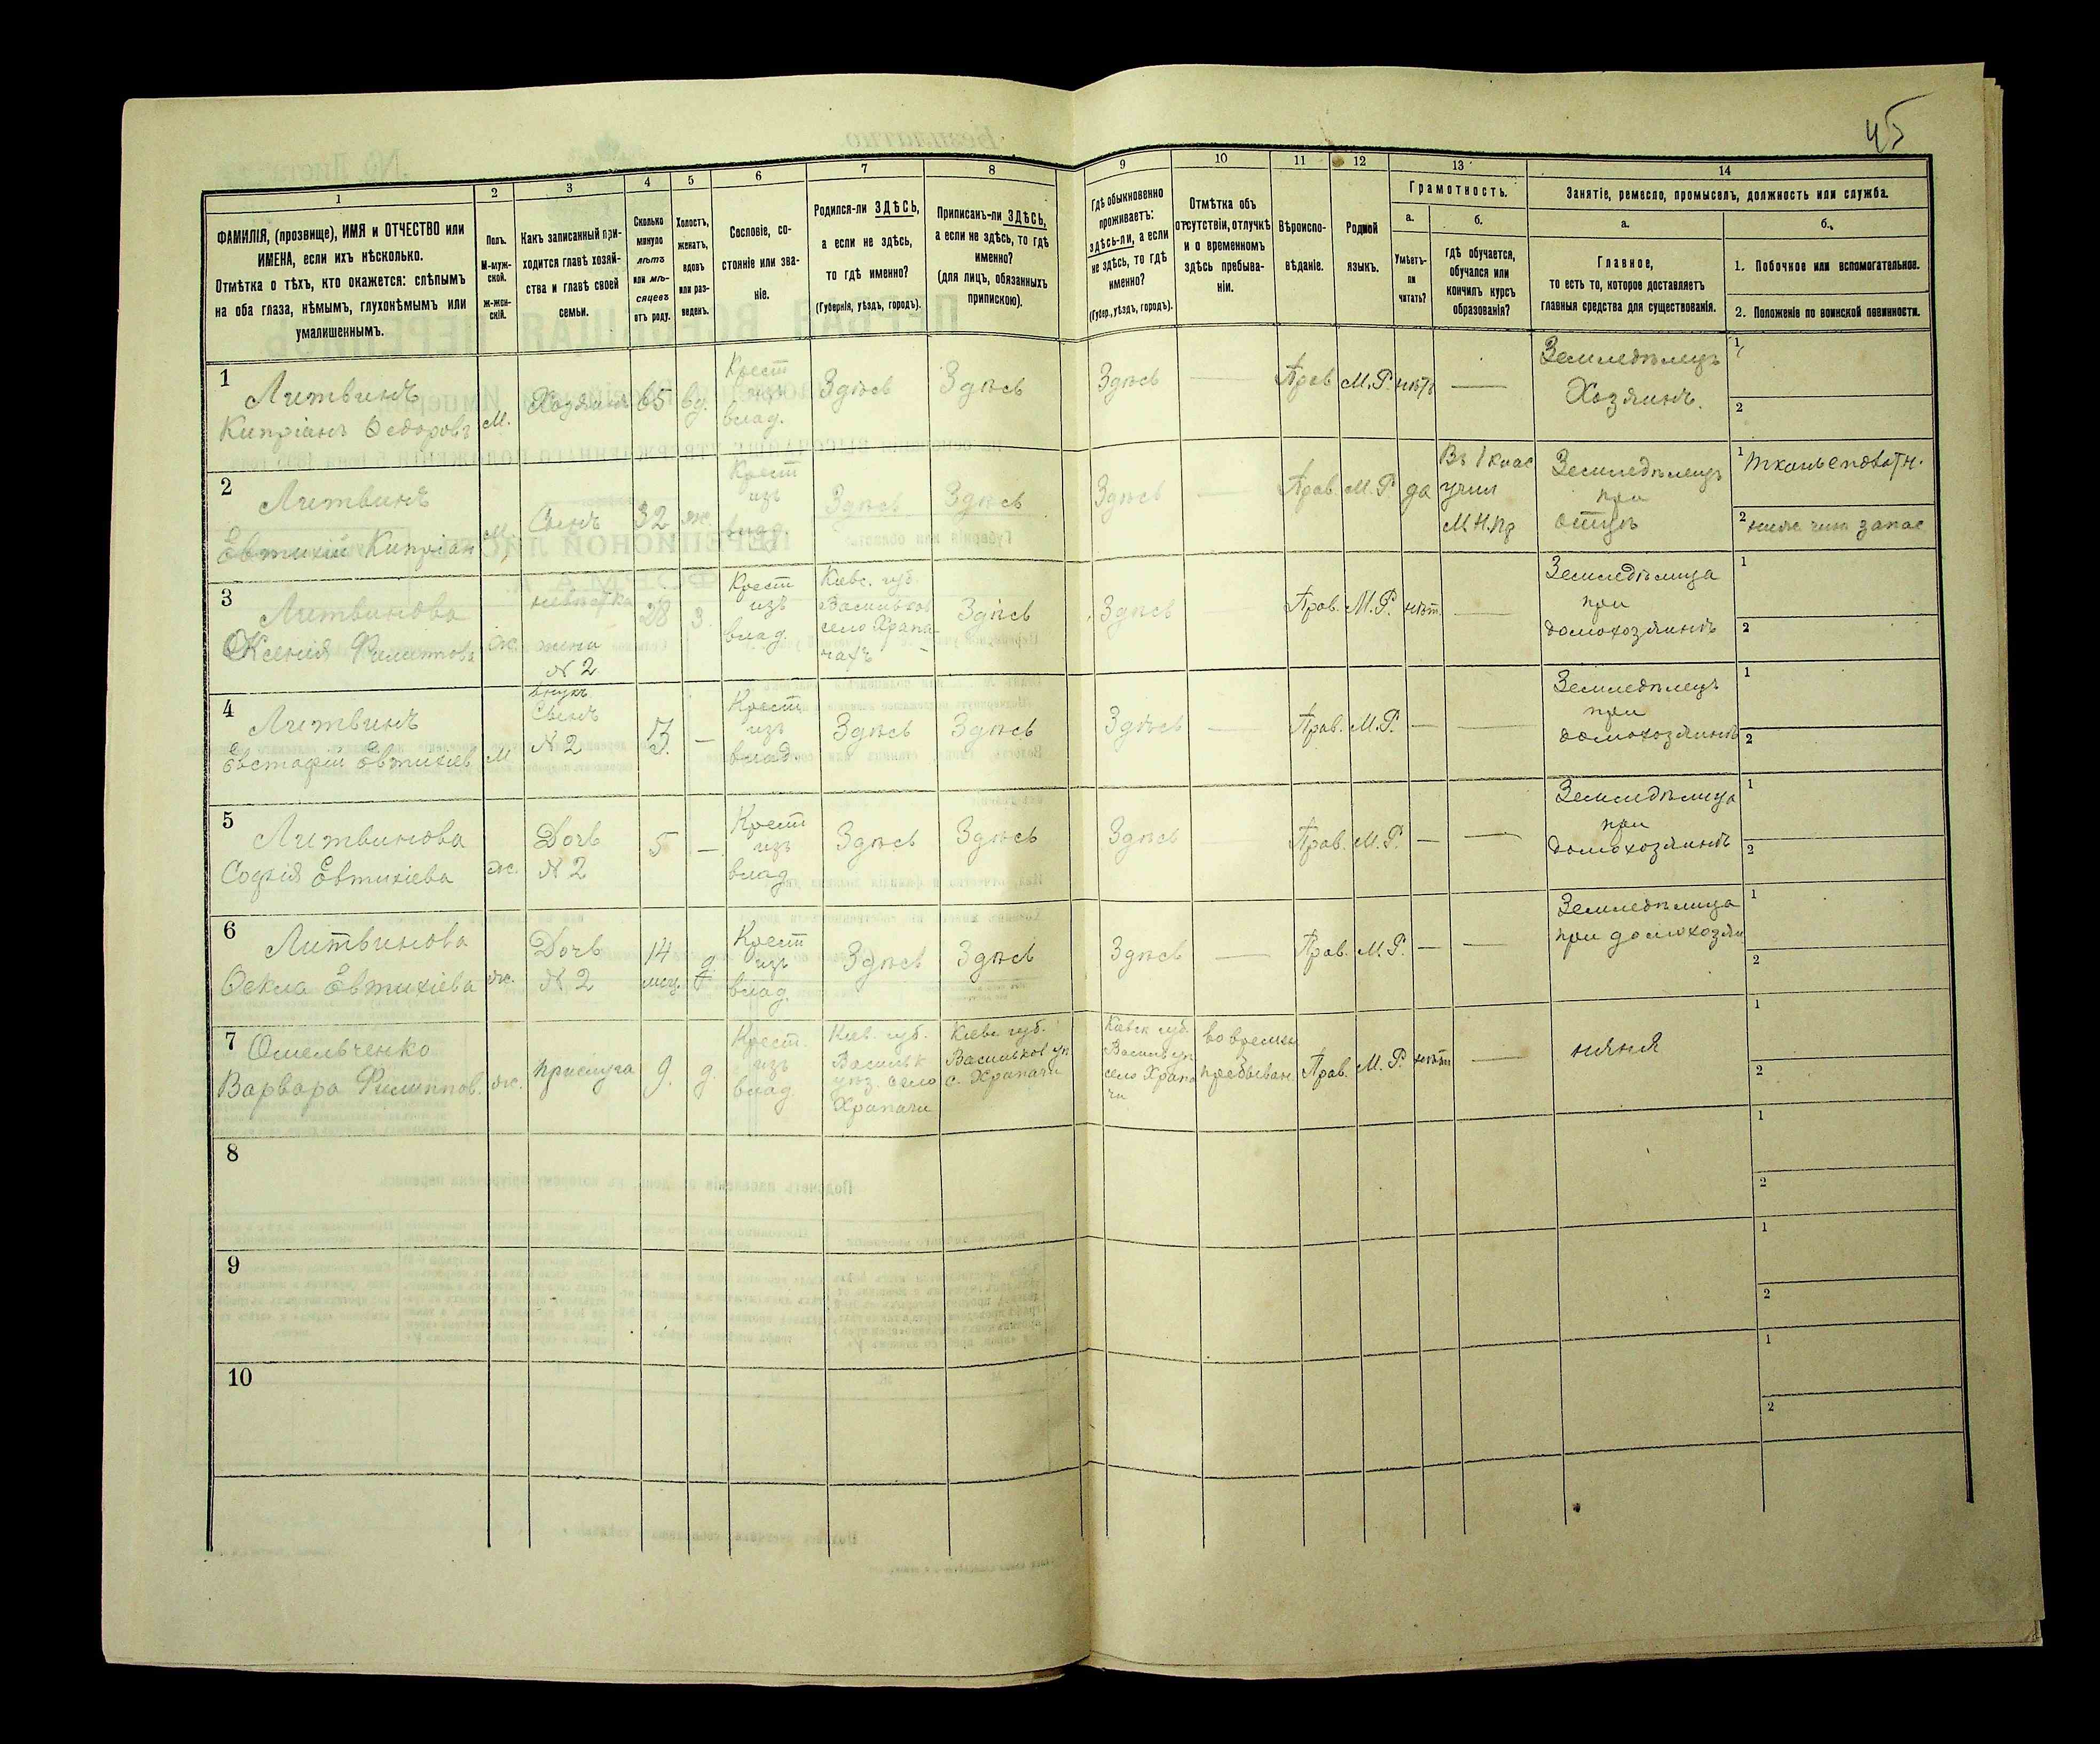 45
1
2
3
4
5
6
7
8
9
10
11
12
13
14
ФАМИЛІЯ, (прозвище), ИМЯ и ОТЧЕСТВО или
ИМЕНА, если ихъ нѣсколько.
Отмѣтка о тѣхъ, кто окажется: слѣпымъ
на оба глаза, нѣмымъ, глухонѣмымъ или
умалишеннымъ.
Полъ.
М-муж-
ской.
Ж-жен-
скій.
Какъ записанный при-
ходится главѣ хозяй-
ства и главѣ своей
семьи.
Сколько
минуло
лѣтъ
или мѣ-
сяцевъ
отъ роду.
Холостъ,
женатъ,
вдовъ
или раз-
веденъ.
Сословіе, со-
стояніе или зва-
ніе.
Родился-ли ЗДѢСЬ,
а если не здѣсь,
то гдѣ именно?
(Губернія, уѣздъ, городъ).
Приписанъ-ли ЗДѢСЬ,
а если не здѣсь, то гдѣ
именно?
(для лицъ, обязанныхъ
припискою).
Гдѣ обыкновенно
проживаетъ:
здѣсь-ли, а если
не здѣсь, то гдѣ
именно?
(Губер., уѣздъ, городъ).
Отмѣтка объ
отсутствіи, отлучкѣ
и о временномъ
здѣсь пребыва-
ніи.
Вѣроиспо-
вѣданіе.
Родной
языкъ.
Грамотность.
а.
Умѣетъ-
ли
читать?
б.
гдѣ обучается,
обучался или
кончилъ курсъ
образованія?
Занятіе, ремесло, промыселъ, должность или служба.
а.
Главное,
то есть то, которое доставляетъ
главныя средства для существованія.
б.
1. Побочное или вспомогательное.
2. Положеніе по воинской повинности.
1
Литвинъ
Кипріанъ Ѳедоровъ
М.
Хозяинъ
65
вд.
Крест
изъ
влад.
Здѣсь
Здѣсь
Здѣсь
—
Прав.
М.Р.
нѣтъ
—
Земледѣлецъ
Хозяинъ.
1
2
2
Литвинъ
Евтихій Кипріан
М
Сынъ
32
ж.
Крест
изъ
влад.
Здѣсь
Здѣсь
Здѣсь
—
Прав.
М.Р.
да
Въ 1 клас
учил
М.Н.Пр
Земледѣлецъ
при
отцѣ
1
2 нижн чин запас
3
Литвинова
Ксенія Филиппова
ж.
невѣстка
жена
N 2
28
з.
Крест
изъ
влад.
Кіевс. губ.
Васильков
село Храпа-
чахъ
Здѣсь
Здѣсь
Прав.
М.Р.
нѣт.
—
Земледѣлица
при
домохозяинѣ
1
2
4
Литвинъ
Евстафій Евтихіев
М
внукъ
Сынъ
N 2
—
Крест
изъ
влад.
Здѣсь
Здѣсь
Здѣсь
—
Прав.
М.Р.
—
—
Земледѣлецъ
при
домохозяинѣ
1
2
5
Литвинова
Софія Евтихіева
ж.
Дочь
N 2
5
—
Крест
изъ
влад
Здѣсь
Здѣсь
Здѣсь
—
Прав.
М.Р.
—
—
Земледѣлица
при
домохозяинѣ
1
2
6
Литвинова
Ѳекла Евтихіева
ж.
Дочь
N 2
14
мец.
д.
Крест
изъ
влад.
Здѣсь
Здѣсь
Здѣсь
—
Прав.
М.Р.
—
—
Земледѣлица
при домохозяи
1
2
7
Омельченко
Варвара Филиппов.
ж.
прислуга
9.
д.
Крест.
изъ
влад.
Кіев. губ.
Васильк
уѣз. село
Храпачи
Кіевс губ.
Васильков уѣ
с. Храпачи
Кіевск губ.
Василь уѣ
село Храпа
чи
во времен
пребыван.
Прав.
М.Р.
нѣтъ
—
няня
1
2
8
1
2
9
1
2
10
1
2